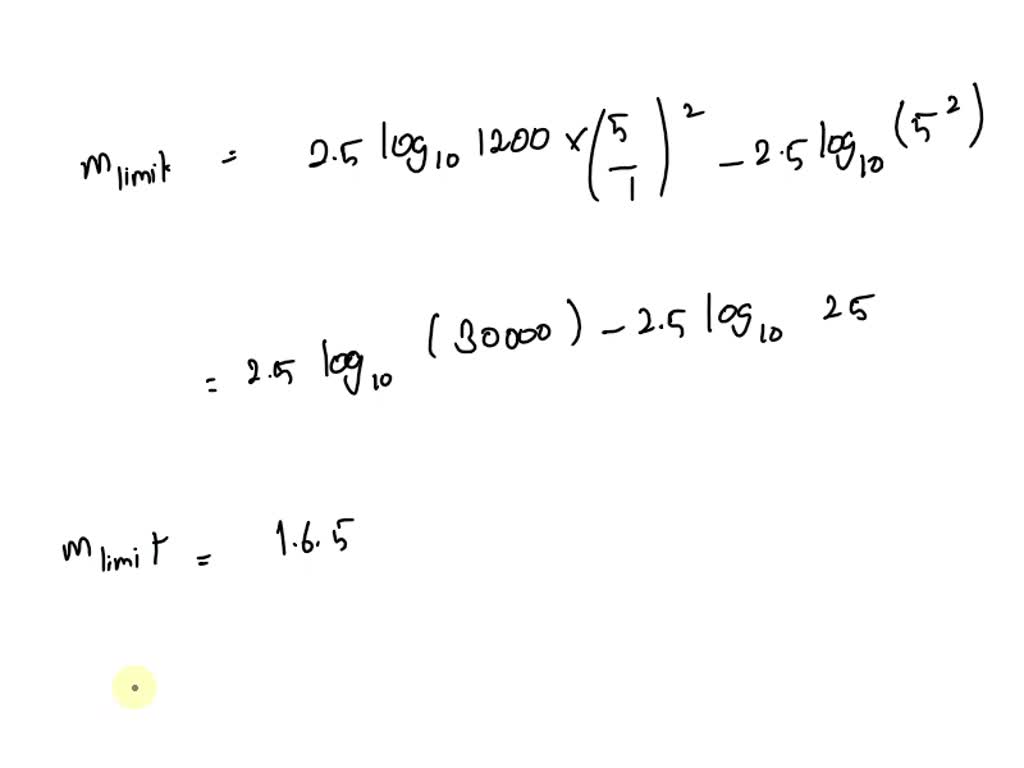 m_limit = 2.5 log₁₀ 1200 × (5/1)² − 2.5 log₁₀ (5²)
= 2.5 log₁₀ (30000) − 2.5 log₁₀ 25
m_limit = 1.6.5